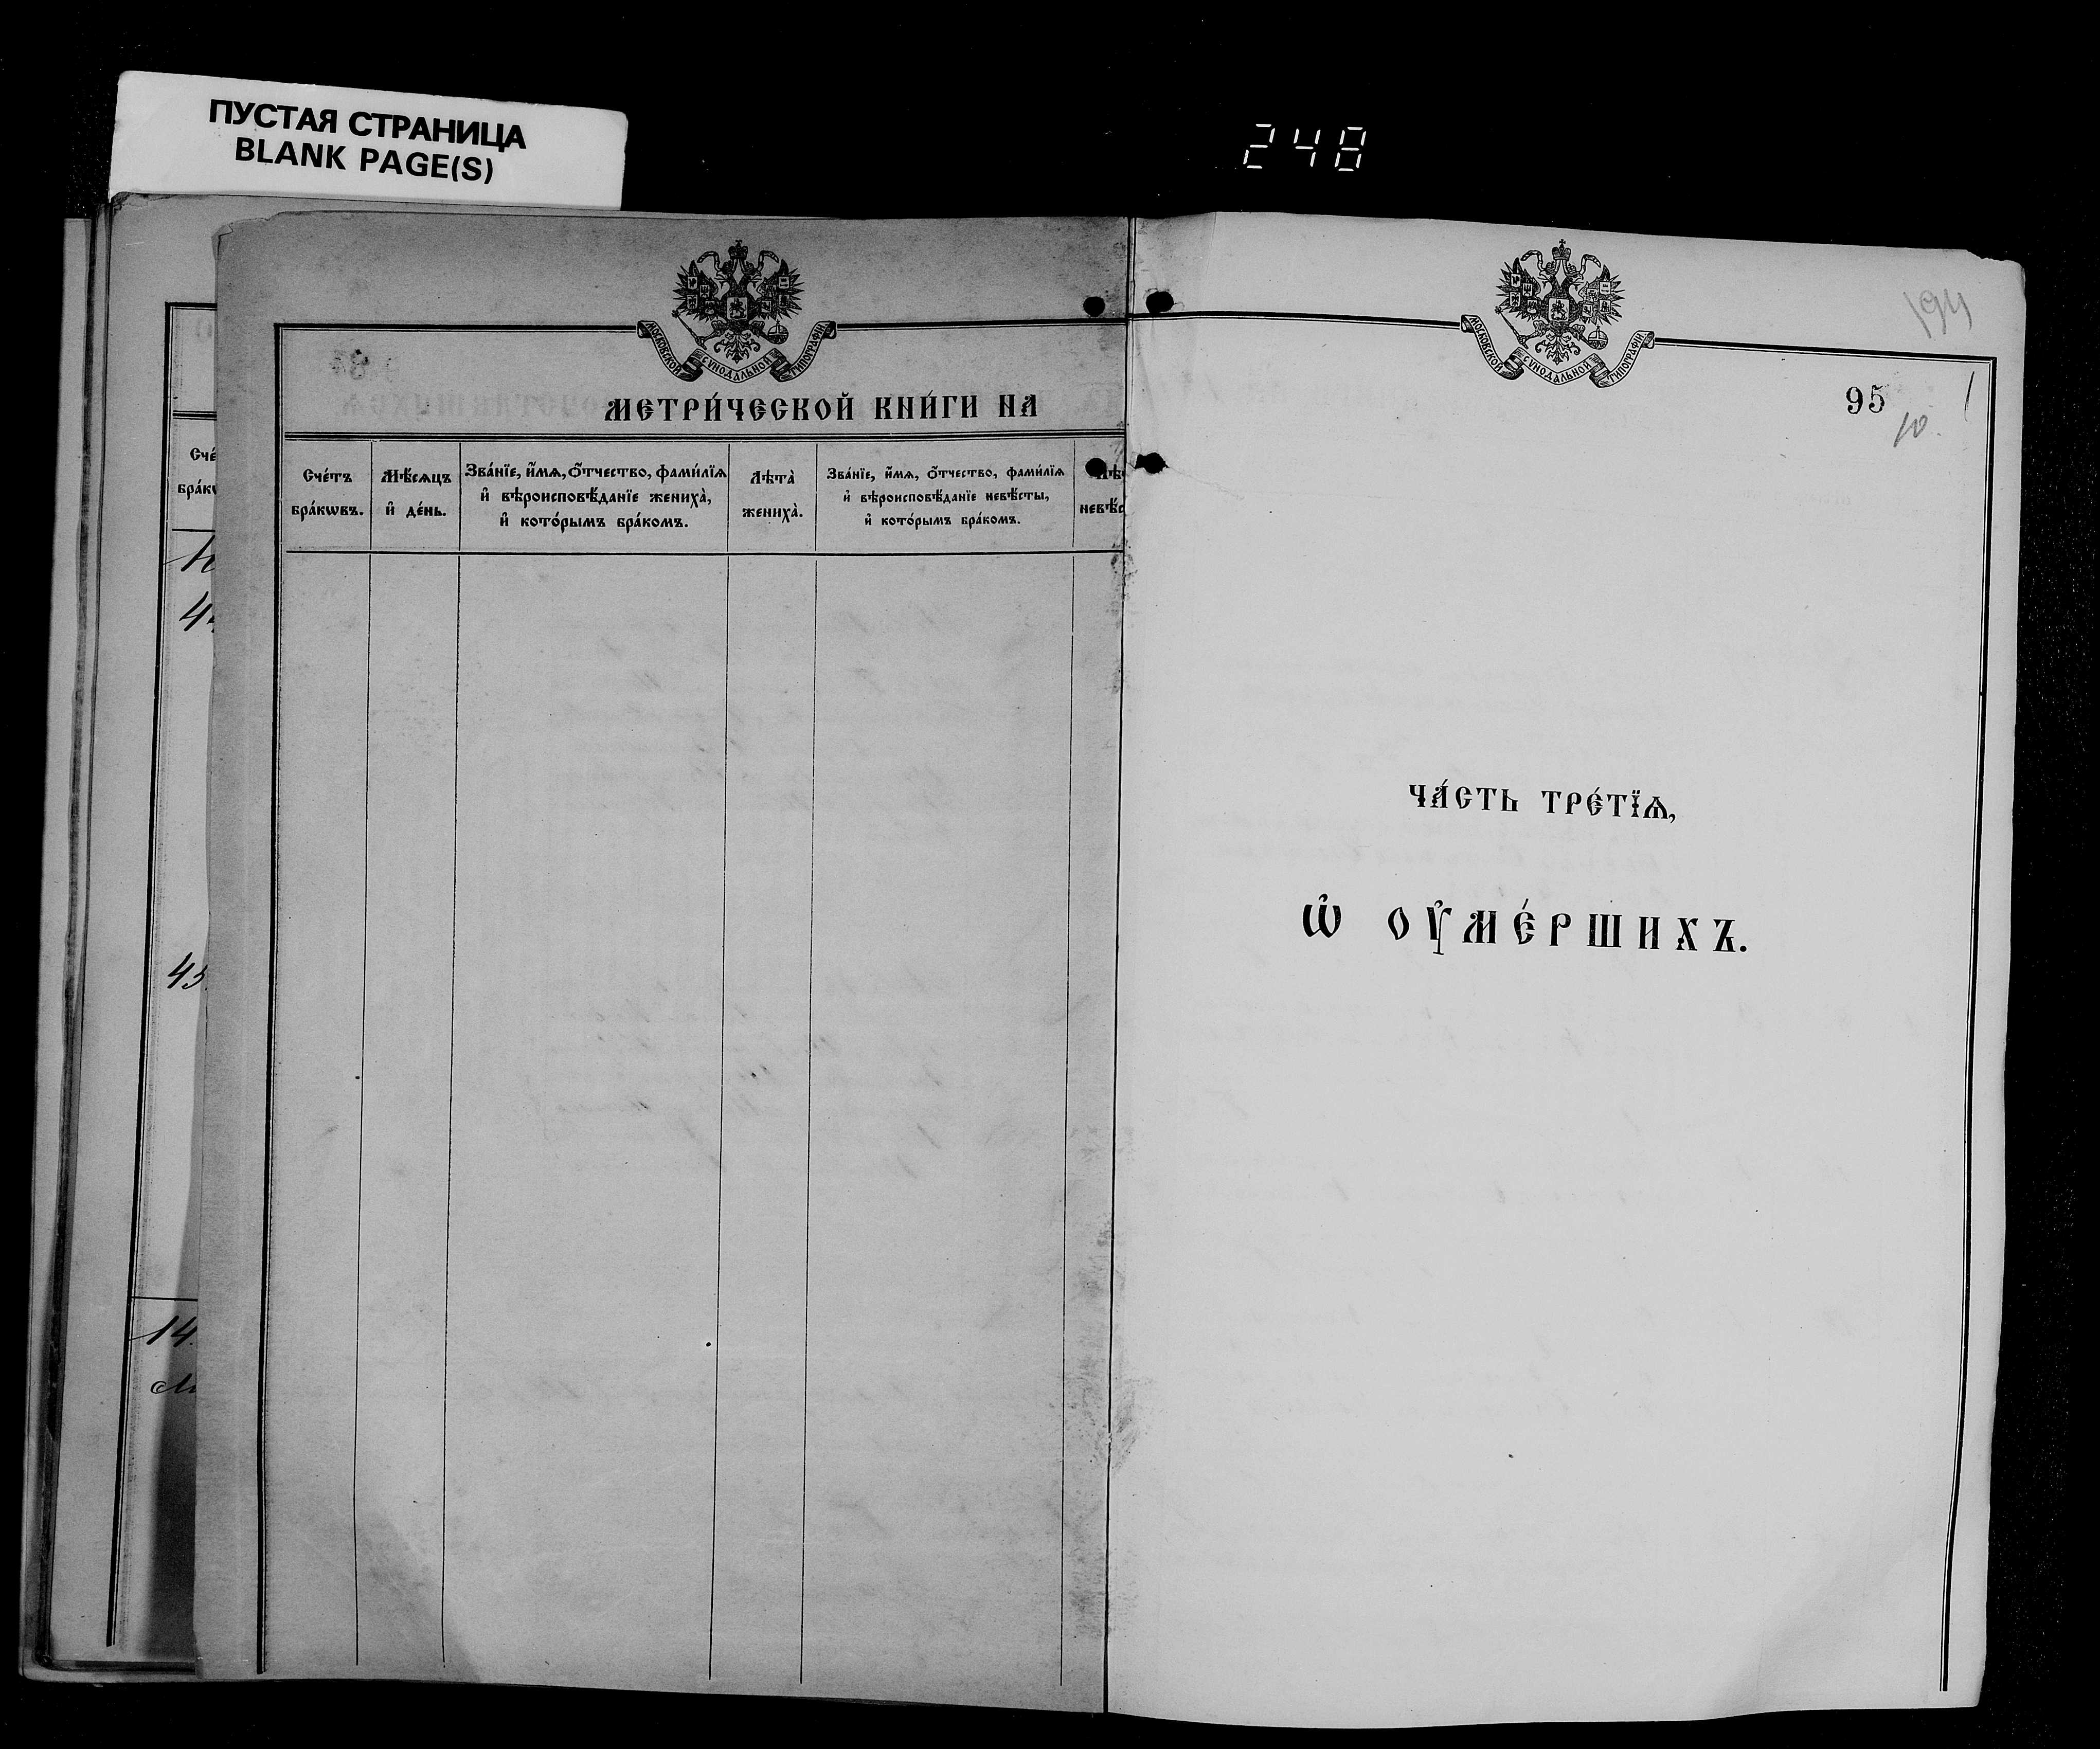 ПУСТАЯ СТРАНИЦА
BLANK PAGE(S)
248
МОСКОВСКОЙ СѴНОДАЛЬНОЙ ТИПОГРАФІИ
МЕТРИ́ЧЕСКОЙ КНИ́ГИ НА
Сче́тъ бра́кѡвъ.
Мѣ́сѧцъ и҆ де́нь.
Зва́нїе, и҆́мѧ, ѻ҆́тчество, фами́лїѧ и҆ вѣроисповѣ́данїе жениха̀, и҆ кото́рымъ бра́комъ.
Лѣта̀ жениха̀.
Зва́нїе, и҆́мѧ, ѻ҆́тчество, фами́лїѧ и҆ вѣроисповѣ́данїе невѣ́сты, и҆ кото́рымъ бра́комъ.
44
45
14
МОСКОВСКОЙ СѴНОДАЛЬНОЙ ТИПОГРАФІИ
194
95
10.
ЧА́СТЬ ТРЕ́ТЇѦ,
Ѡ҆ ОУ҆МЕ́РШИХЪ.